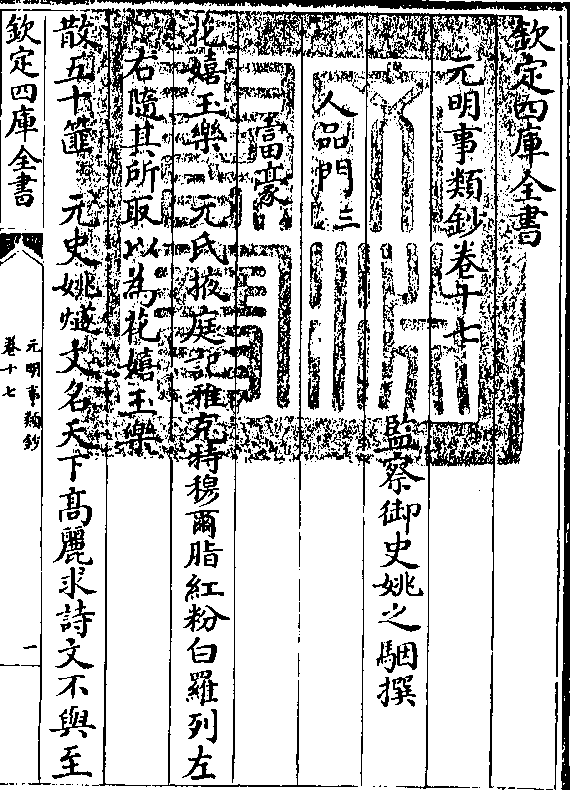 欽定四庫全書
元明事類鈔卷十七
監察御史姚之駰撰
人品門三
富豪
花嬉玉樂 元氏掖庭記雅克特穆爾脂紅粉白羅列左
右隨其所取以為花嬉玉樂
散五十篚 元史姚燧文名天下高麗求詩文不與至
欽定四庫全書
元明事類鈔
卷十七
一